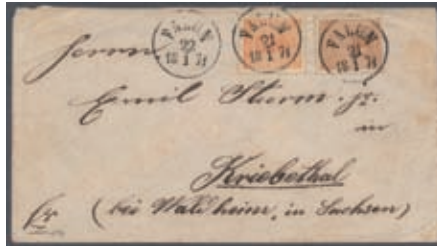 FALUN
22
18 1 71
FALUN
21
18 1 71
FALUN
21
18 1 71
Herrn
Emil Sturm. jr.
in
Kriebethal
(bei Waldheim, in Sachsen)